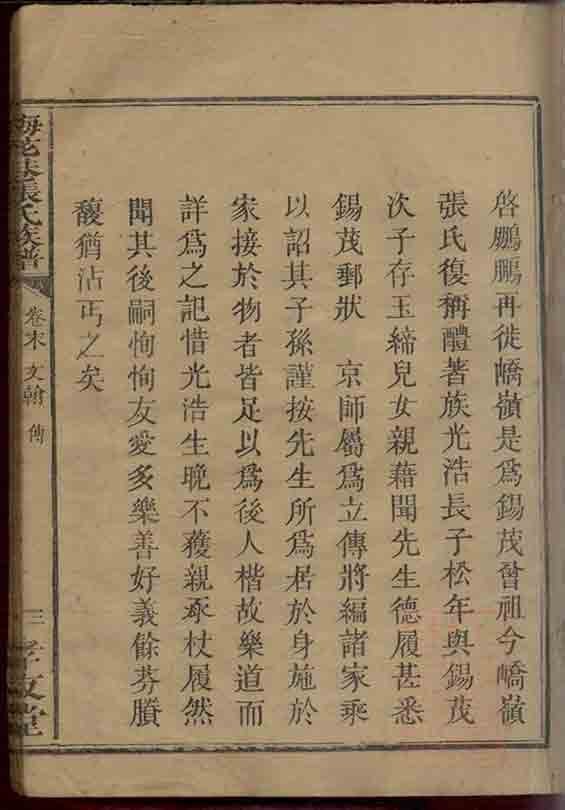 啓鵬鵬再徙嶠嶺是爲錫茂曾祖今嶠嶺
張氏復稱醴著族光浩長子松年與錫茂
次子存玉締兒女親藉聞先生德履甚悉
錫茂郵狀　京師屬爲立傳將編諸家乘
以詔其子孫謹按先生所爲居於身施於
家接於物者皆足以爲後人楷故樂道而
詳爲之記惜光浩生晚不獲親承杖履然
聞其後嗣恂恂友愛多樂善好義餘芬賸
馥猶沾丐之矣
張氏族譜
卷末 文翰 傳
三
孝友堂